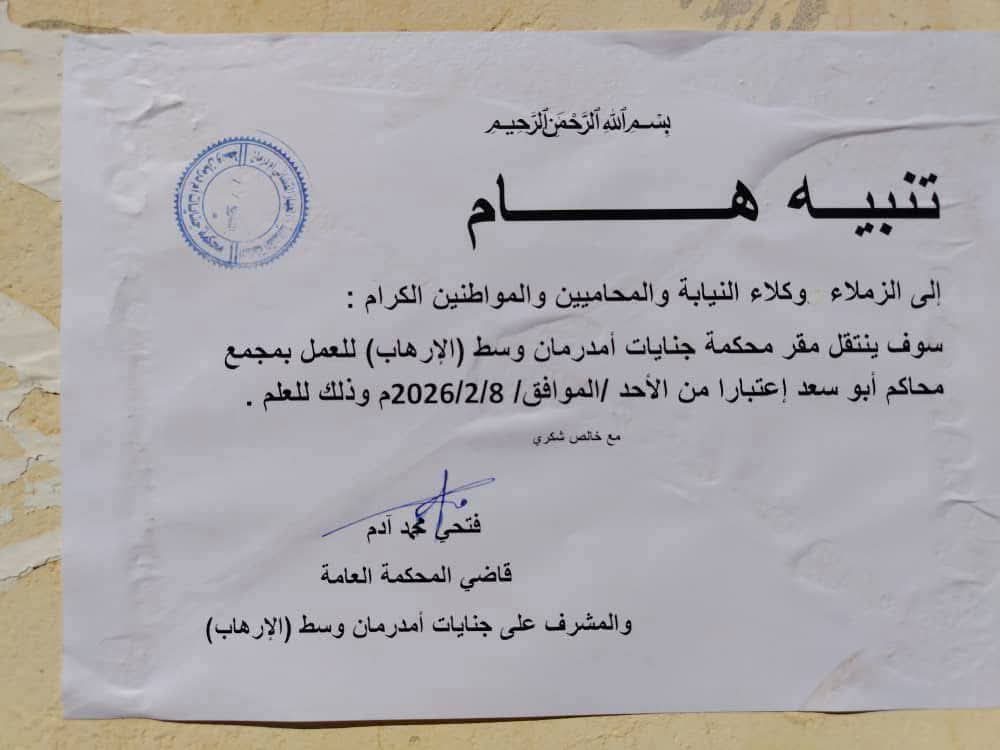 بسم الله الرحمن الرحيم
تنبيه هـــام
إلى الزملاء وكلاء النيابة والمحاميين والمواطنين الكرام :
سوف ينتقل مقر محكمة جنايات أمدرمان وسط (الإرهاب) للعمل بمجمع
محاكم أبو سعد إعتبارا من الأحد /الموافق/ 2026/2/8م وذلك للعلم .
مع خالص شكري
فتحي محمد آدم
قاضي المحكمة العامة
والمشرف على جنايات أمدرمان وسط (الإرهاب)